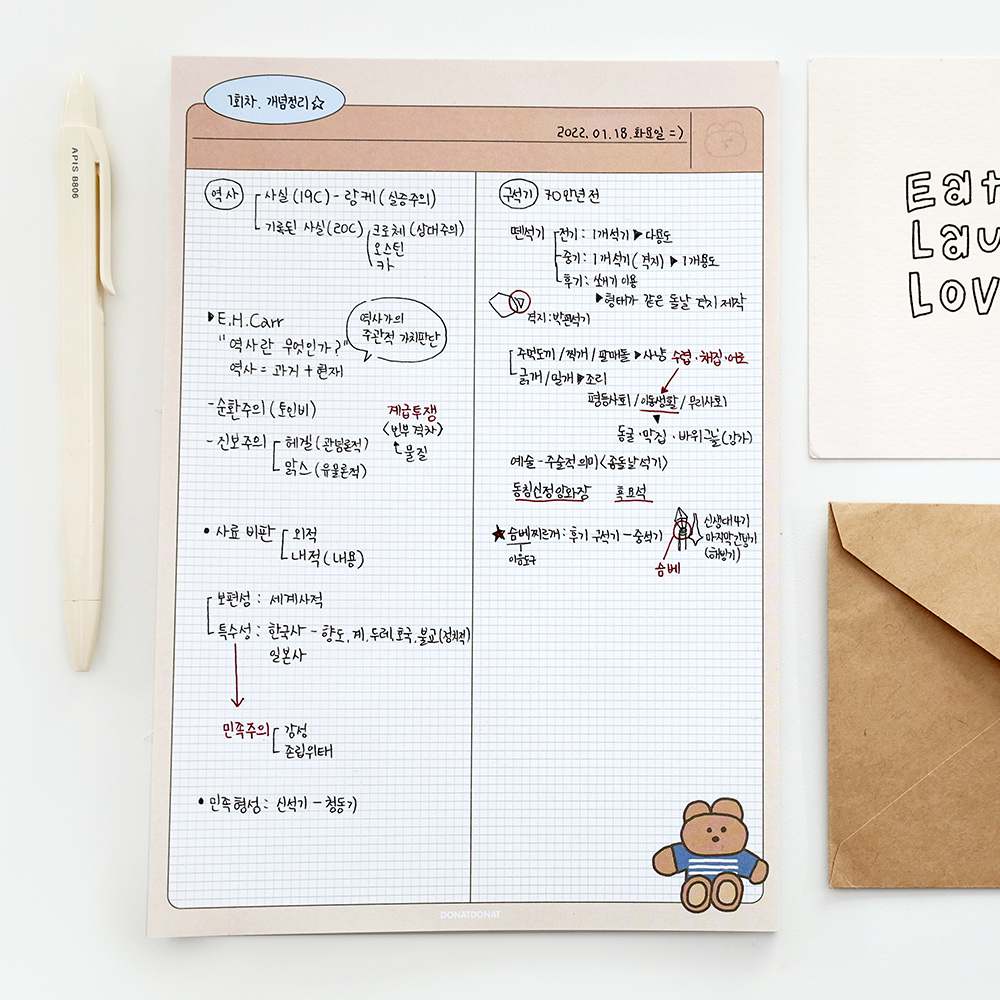 APIS B806
1회차. 개념정리☆
2022. 01. 18. 화요일 =)
역사
사실(19C) - 랑케(실증주의)
기록된 사실(20C) 크로체(상대주의)
오스틴
카
▶E.H.Carr
"역사란 무엇인가?"
역사 = 과거 + 현재
역사가의
주관적 가치판단
-순환주의(토인비)
-진보주의 헤겔(관념론적)
맑스(유물론적)
계급투쟁
<빈부격차>
물질
• 사료 비판 외적
내적(내용)
보편성 : 세계사적
특수성 : 한국사 - 향도, 계, 두레, 호국, 불교(정치적)
일본사
민족주의 감성
존립위태
• 민족형성 : 신석기 - 청동기
구석기 70만년 전
뗀석기 전기 : 1개석기 ▶ 다용도
중기 : 1개석기(격지) ▶ 1개용도
후기 : 쐐기 이용
▶형태가 같은 돌날 격지 제작
격지 : 박편석기
주먹도끼 / 찍개 / 팔매돌 ▶ 사냥 수렵·채집·어로
긁개 / 밀개 ▶ 조리
평등사회 / 이동생활 / 무리사회
동굴·막집·바위그늘(강가)
예술 - 주술적 의미 <좀돌날석기>
흑요석
★ 슴베찌르개 : 후기 구석기 - 중석기
이음도구
슴베
신생대 4기
마지막간빙기
(해빙기)
DONATDONAT
Eat
Lau
Lov